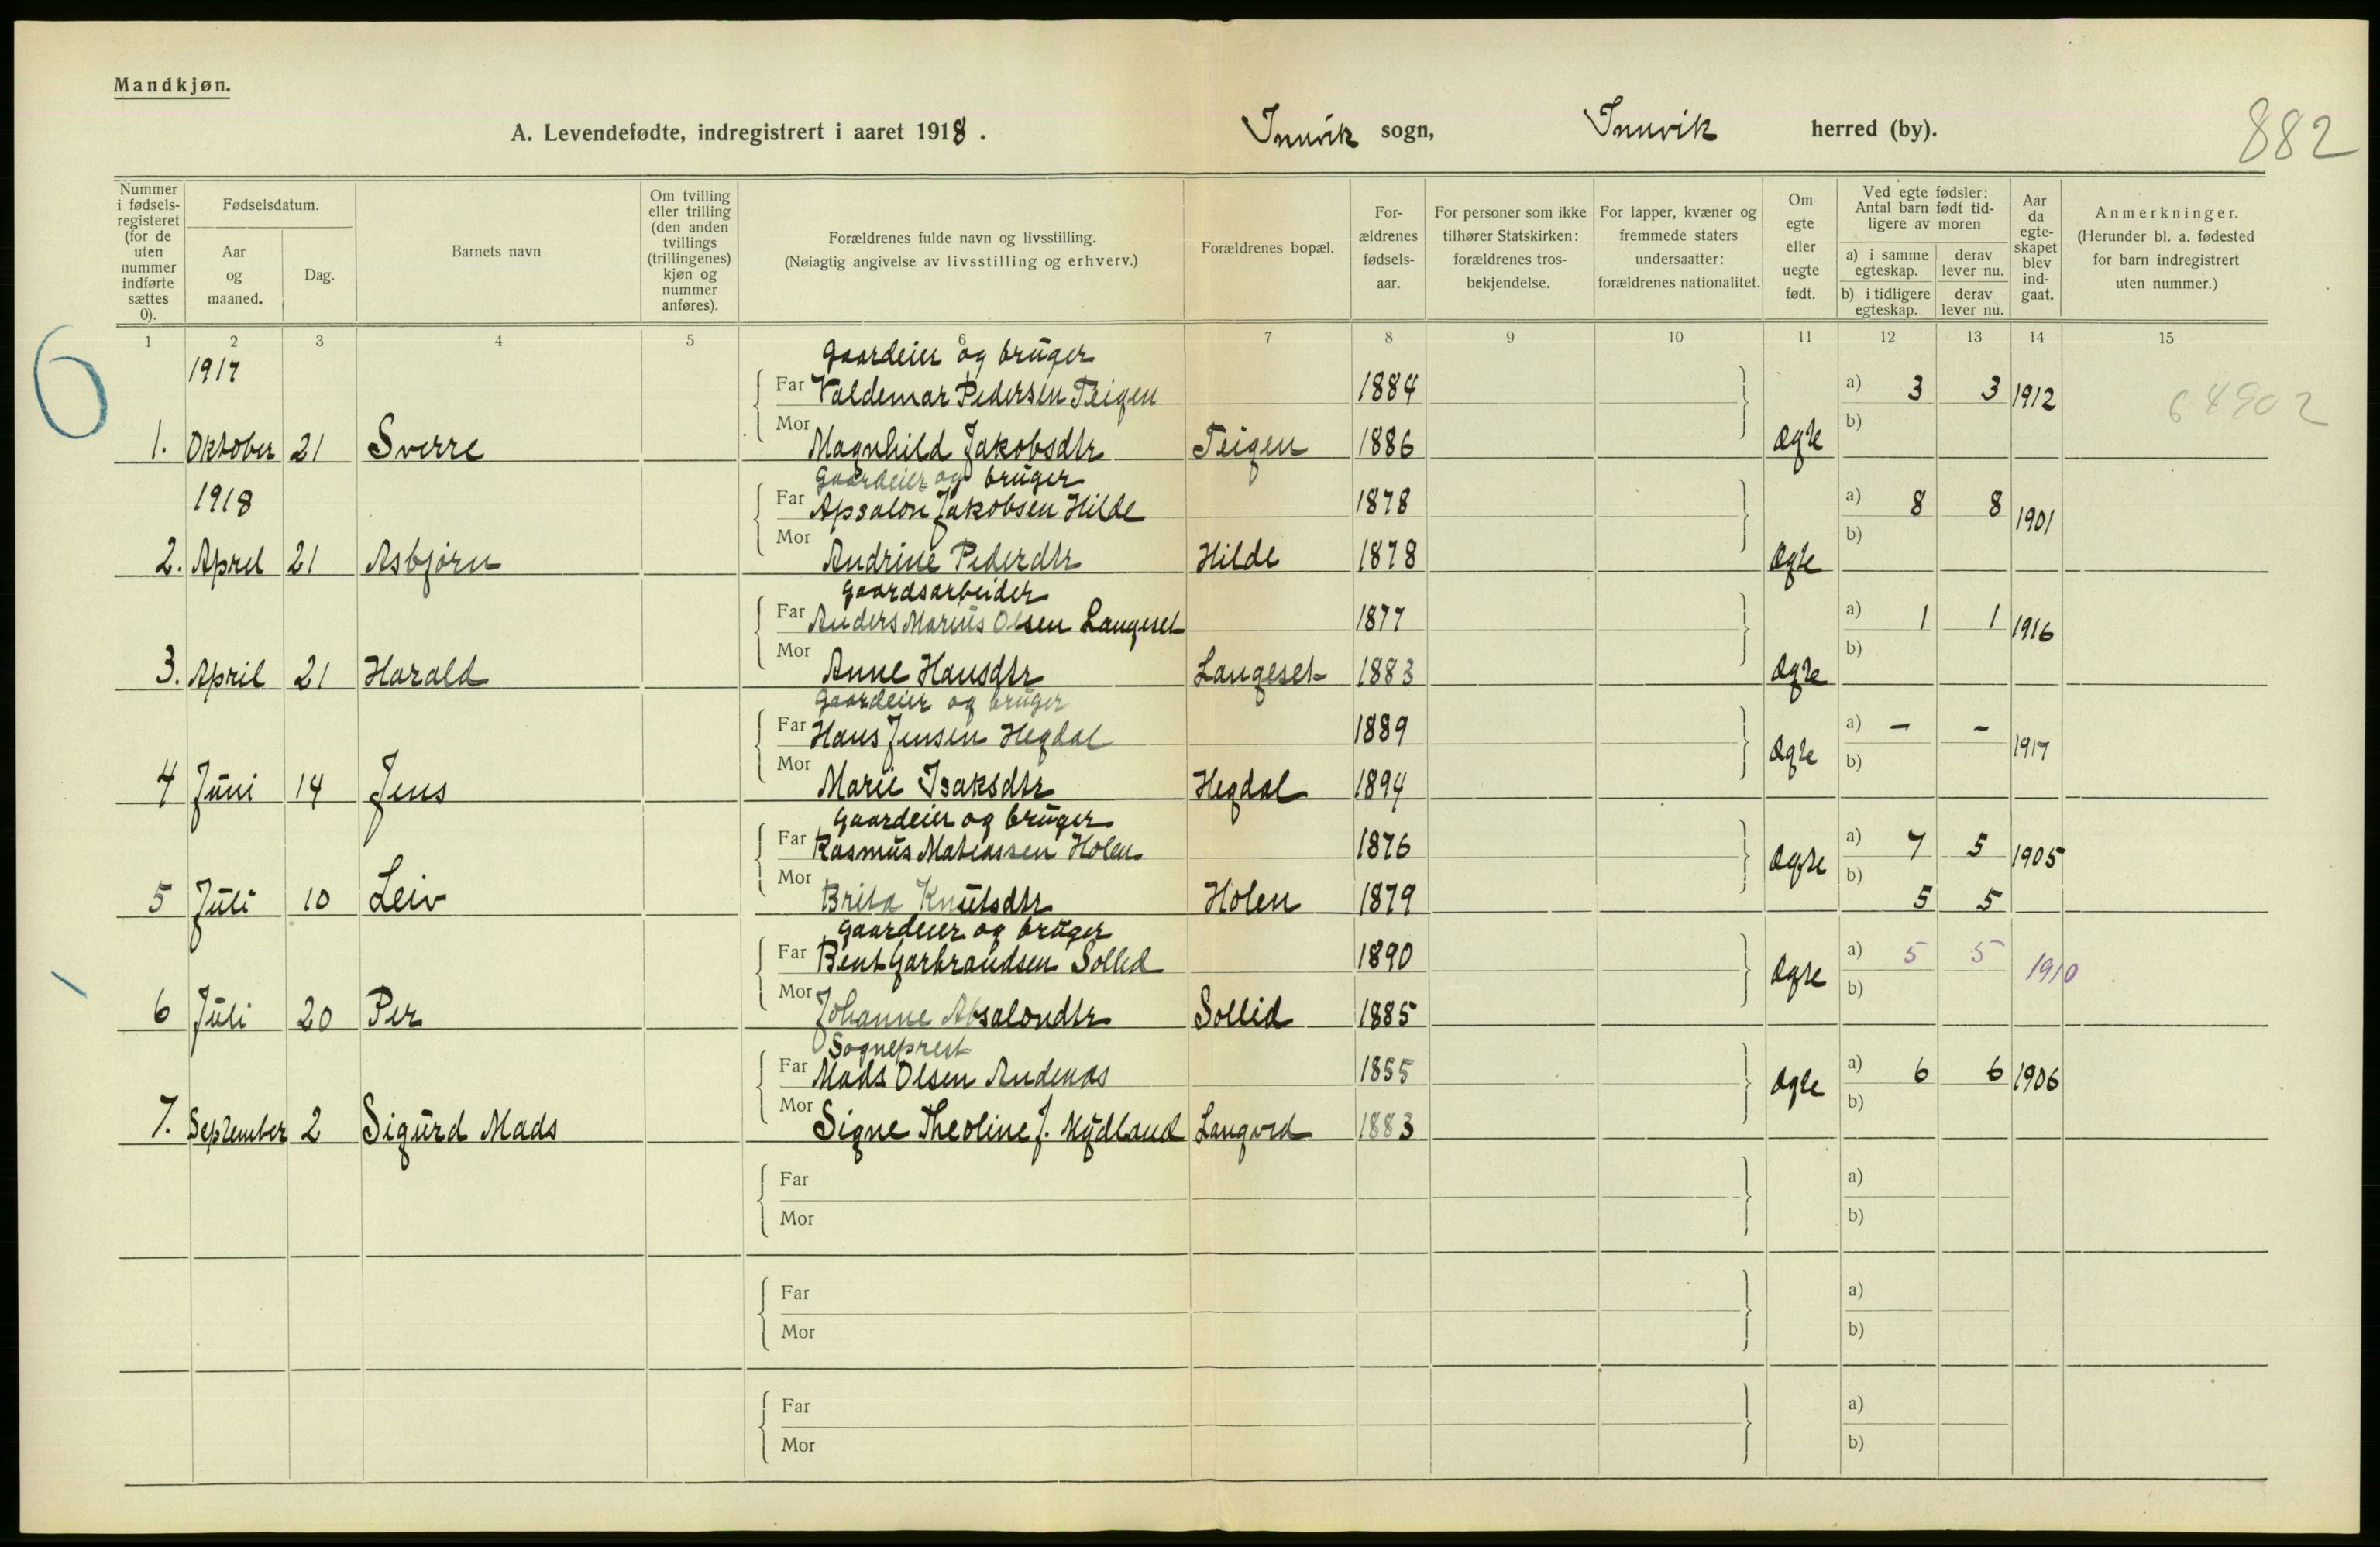 Mandkjøn.
A. Levendefødte, indregistrert i aaret 1918. Innvik sogn, Innvik herred (by).
882
Nummer i fødsels-registeret (for de uten nummer indførte sættes 0).
Fødselsdatum.
Aar og maaned.
Dag.
Barnets navn
Om tvilling eller trilling (den anden tvillings (trillingenes) kjøn og nummer anføres).
Forældrenes fulde navn og livsstilling.
(Nøiagtig angivelse av livsstilling og erhverv.)
Forældrenes bopæl.
For-ældrenes fødsels-aar.
For personer som ikke tilhører Statskirken: forældrenes tros-bekjendelse.
For lapper, kvæner og fremmede staters undersaatter: forældrenes nationalitet.
Om egte eller uegte født.
Ved egte fødsler: Antal barn født tid-ligere av moren
a) i samme egteskap. derav lever nu.
b) i tidligere egteskap. derav lever nu.
Aar da egte-skapet blev ind-gaat.
Anmerkninger.
(Herunder bl. a. fødested for barn indregistrert uten nummer.)
1 2 3 4 5 6 7 8 9 10 11 12 13 14 15
6
Gaardeier og bruger
1917 Far Valdemar Pedersen Teigen 1884 a) 3 3 1912 64902
1. Oktober 21 Sverre Mor Magnhild Jakobsdtr Teigen 1886 Ægte b)
Gaardeier og bruger
1918 Far Apsalon Jakobsen Hilde 1878 a) 8 8 1901
2. April 21 Asbjørn Mor Andrine Pederdtr Hilde 1878 Ægte b)
Gaardsarbeider
Far Anders Marius Olsen Langeset 1877 a) 1 1 1916
3. April 21 Harald Mor Anne Hansdtr Langeset 1883 Ægte b)
Gaardeier og bruger
Far Hans Jensen Hegdal 1889 a) - - 1917
4 Juni 14 Jens Mor Marie Isaksdtr Hegdal 1894 Ægte b)
Gaardeier og bruger
Far Rasmus Matiassen Holen 1876 a) 7 5 1905
5 Juli 10 Leiv Mor Brita Knutsdtr Holen 1879 Ægte b) 5 5
Gaardeier og bruger
Far Bent Garbrandsen Sollid 1890 a) 5 5 1910
6 Juli 20 Per Mor Johanne Absalondtr Sollid 1885 Ægte b)
Sogneprest
Far Mads Olsen Andenæs 1855 a) 6 6 1906
7. September 2 Sigurd Mads Mor Signe Theoline J. Mydland 1883 Ægte b)
Far a)
Mor b)
Far a)
Mor b)
Far a)
Mor b)